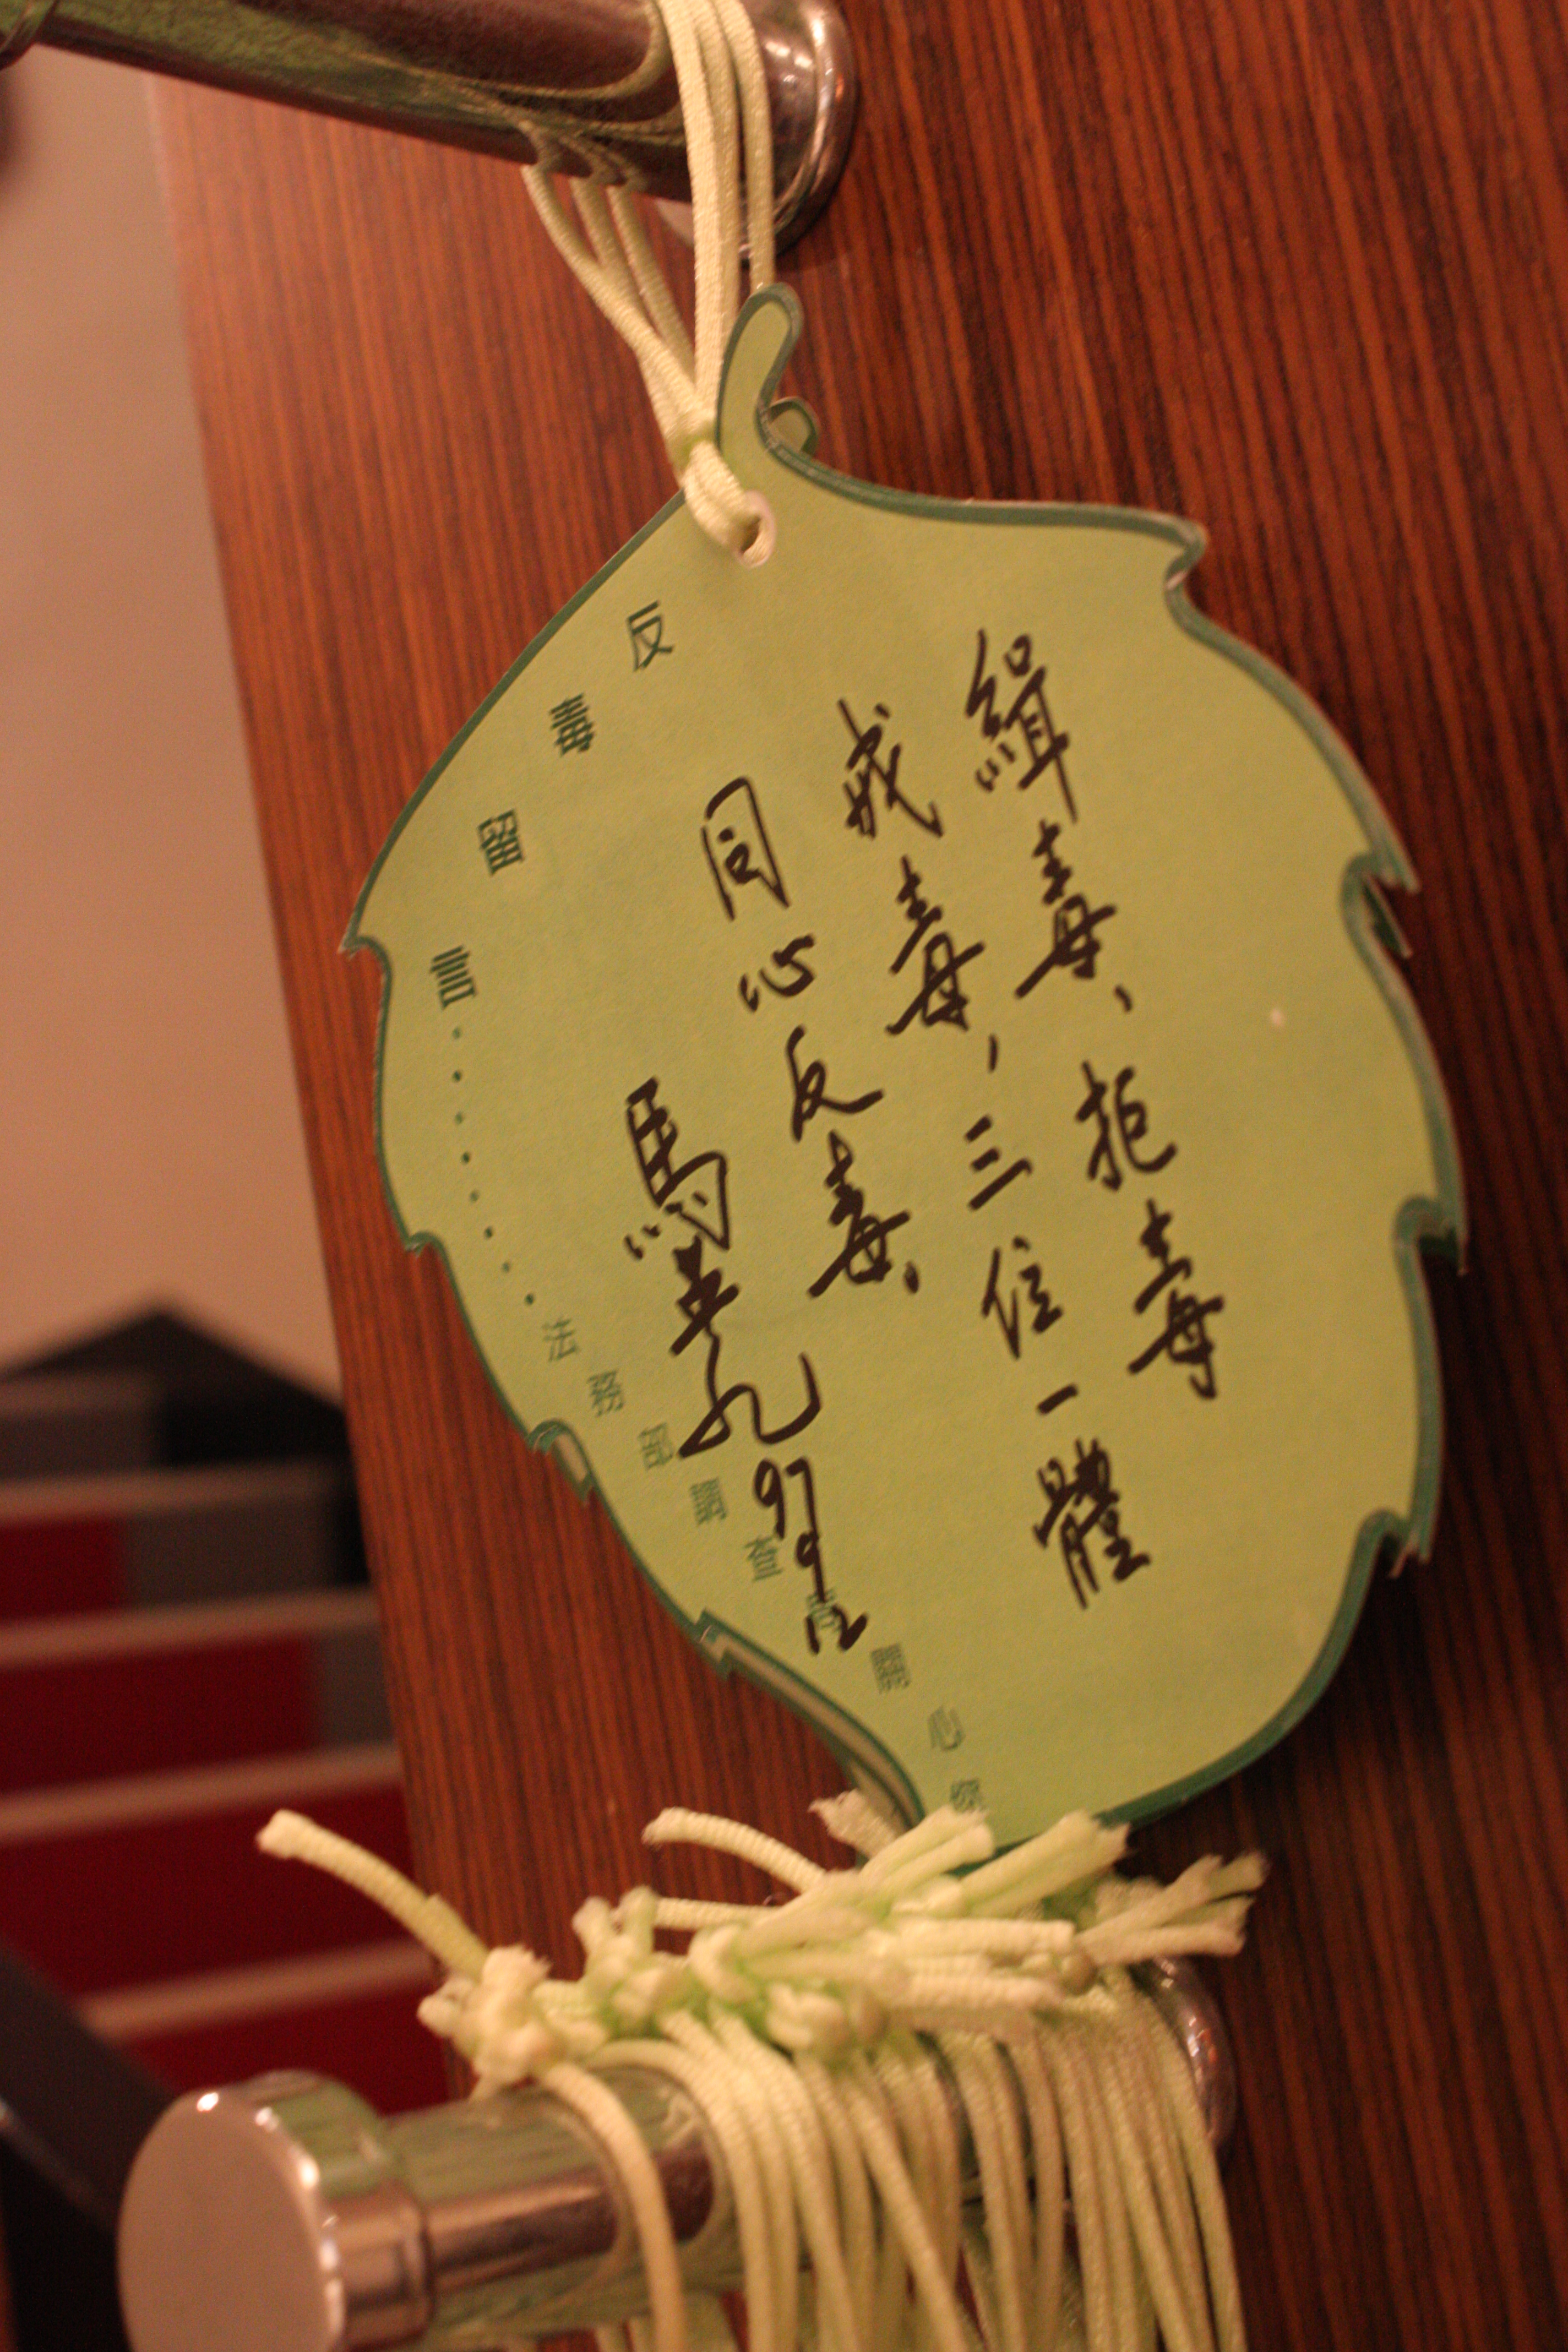 緝毒、拒毒
戒毒，三位一體
同心反毒。
馬英九 97 9 12
反毒留言........法務部調查局關心您